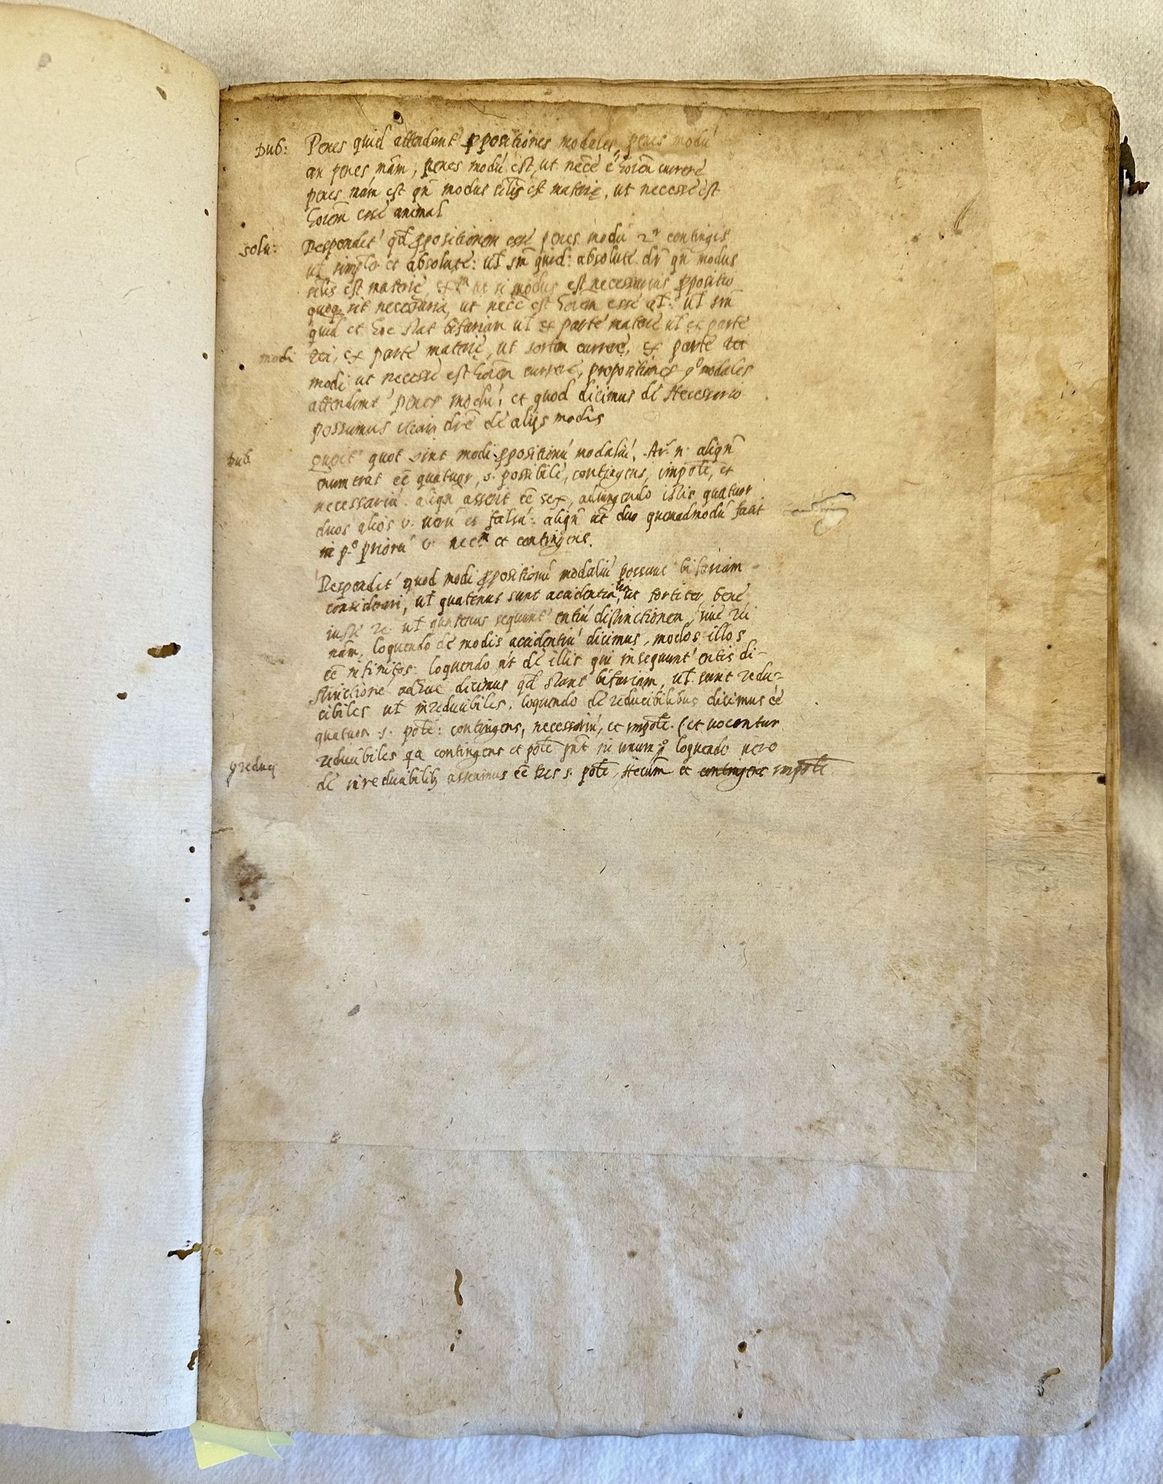 Dub: Penes quid attendant' ppositiones modales, penes modū
an penes mām, penes modū est, ut necē ē hoiēm currere
penes mām est qn̄ modus silis est materię, ut necesse est
hoiēm esse animal
solu: Respondet' qd ppositionem esse penes modū 2r contingit
ut simplr et absolute: ut sm̄ quid: absolute dr̄ qn̄ modus
silis est materię, ut si modus est necessarius ppositio
quoq sit necessaria, ut necē est hoiem esse al: ut sm̄
quid et hoc stat bifariam ut ex parte materię ut ex parte
modi rei, ex parte materię, ut sortem currere, ex parte
modi ut necesse est hoiēm currere, propositiones modales
attendunt' penes modū, et quod dicimus de Necessario
possumus etiam dre de alijs modis
Dub. quot sint modi ppositionū modaliū, Ar. n. aliqn̄
enumerat eē quatuor, s. possibile, contingens, impole, et
necessariū. aliqn̄ asserit eē sex, adiungendo istis quatuor
duos alios v: verū et falsū: aliqn̄ ut duo quemadmodū facit
in p.o priorū v: et contingens.
Respondet' quod modi ppositionū modaliū possunt bifariam
considerari, ut quatenus sunt accidentiū, ut fortiter bene
iuste 2c ut quatenus sequunt' entiū distinctionem, sive rei
nām, loquendo de modis accidentiū dicimus, modos illos
eē infinitos. loquendo at de illis qui insequunt' entis di-
stinctionē adhuc dicimus qd stant bifariam, ut sunt redu-
cibiles ut irreduibiles, loquendo de reducibilibus dicimus eē
quatuor .s. pote: contingens, necessariū, et impole. (et vocantur
reduibiles qa contingens et pote in unum) loquendo vero
de irreduibilib asserimus eē tres s. pote, Necūm et contingens impole